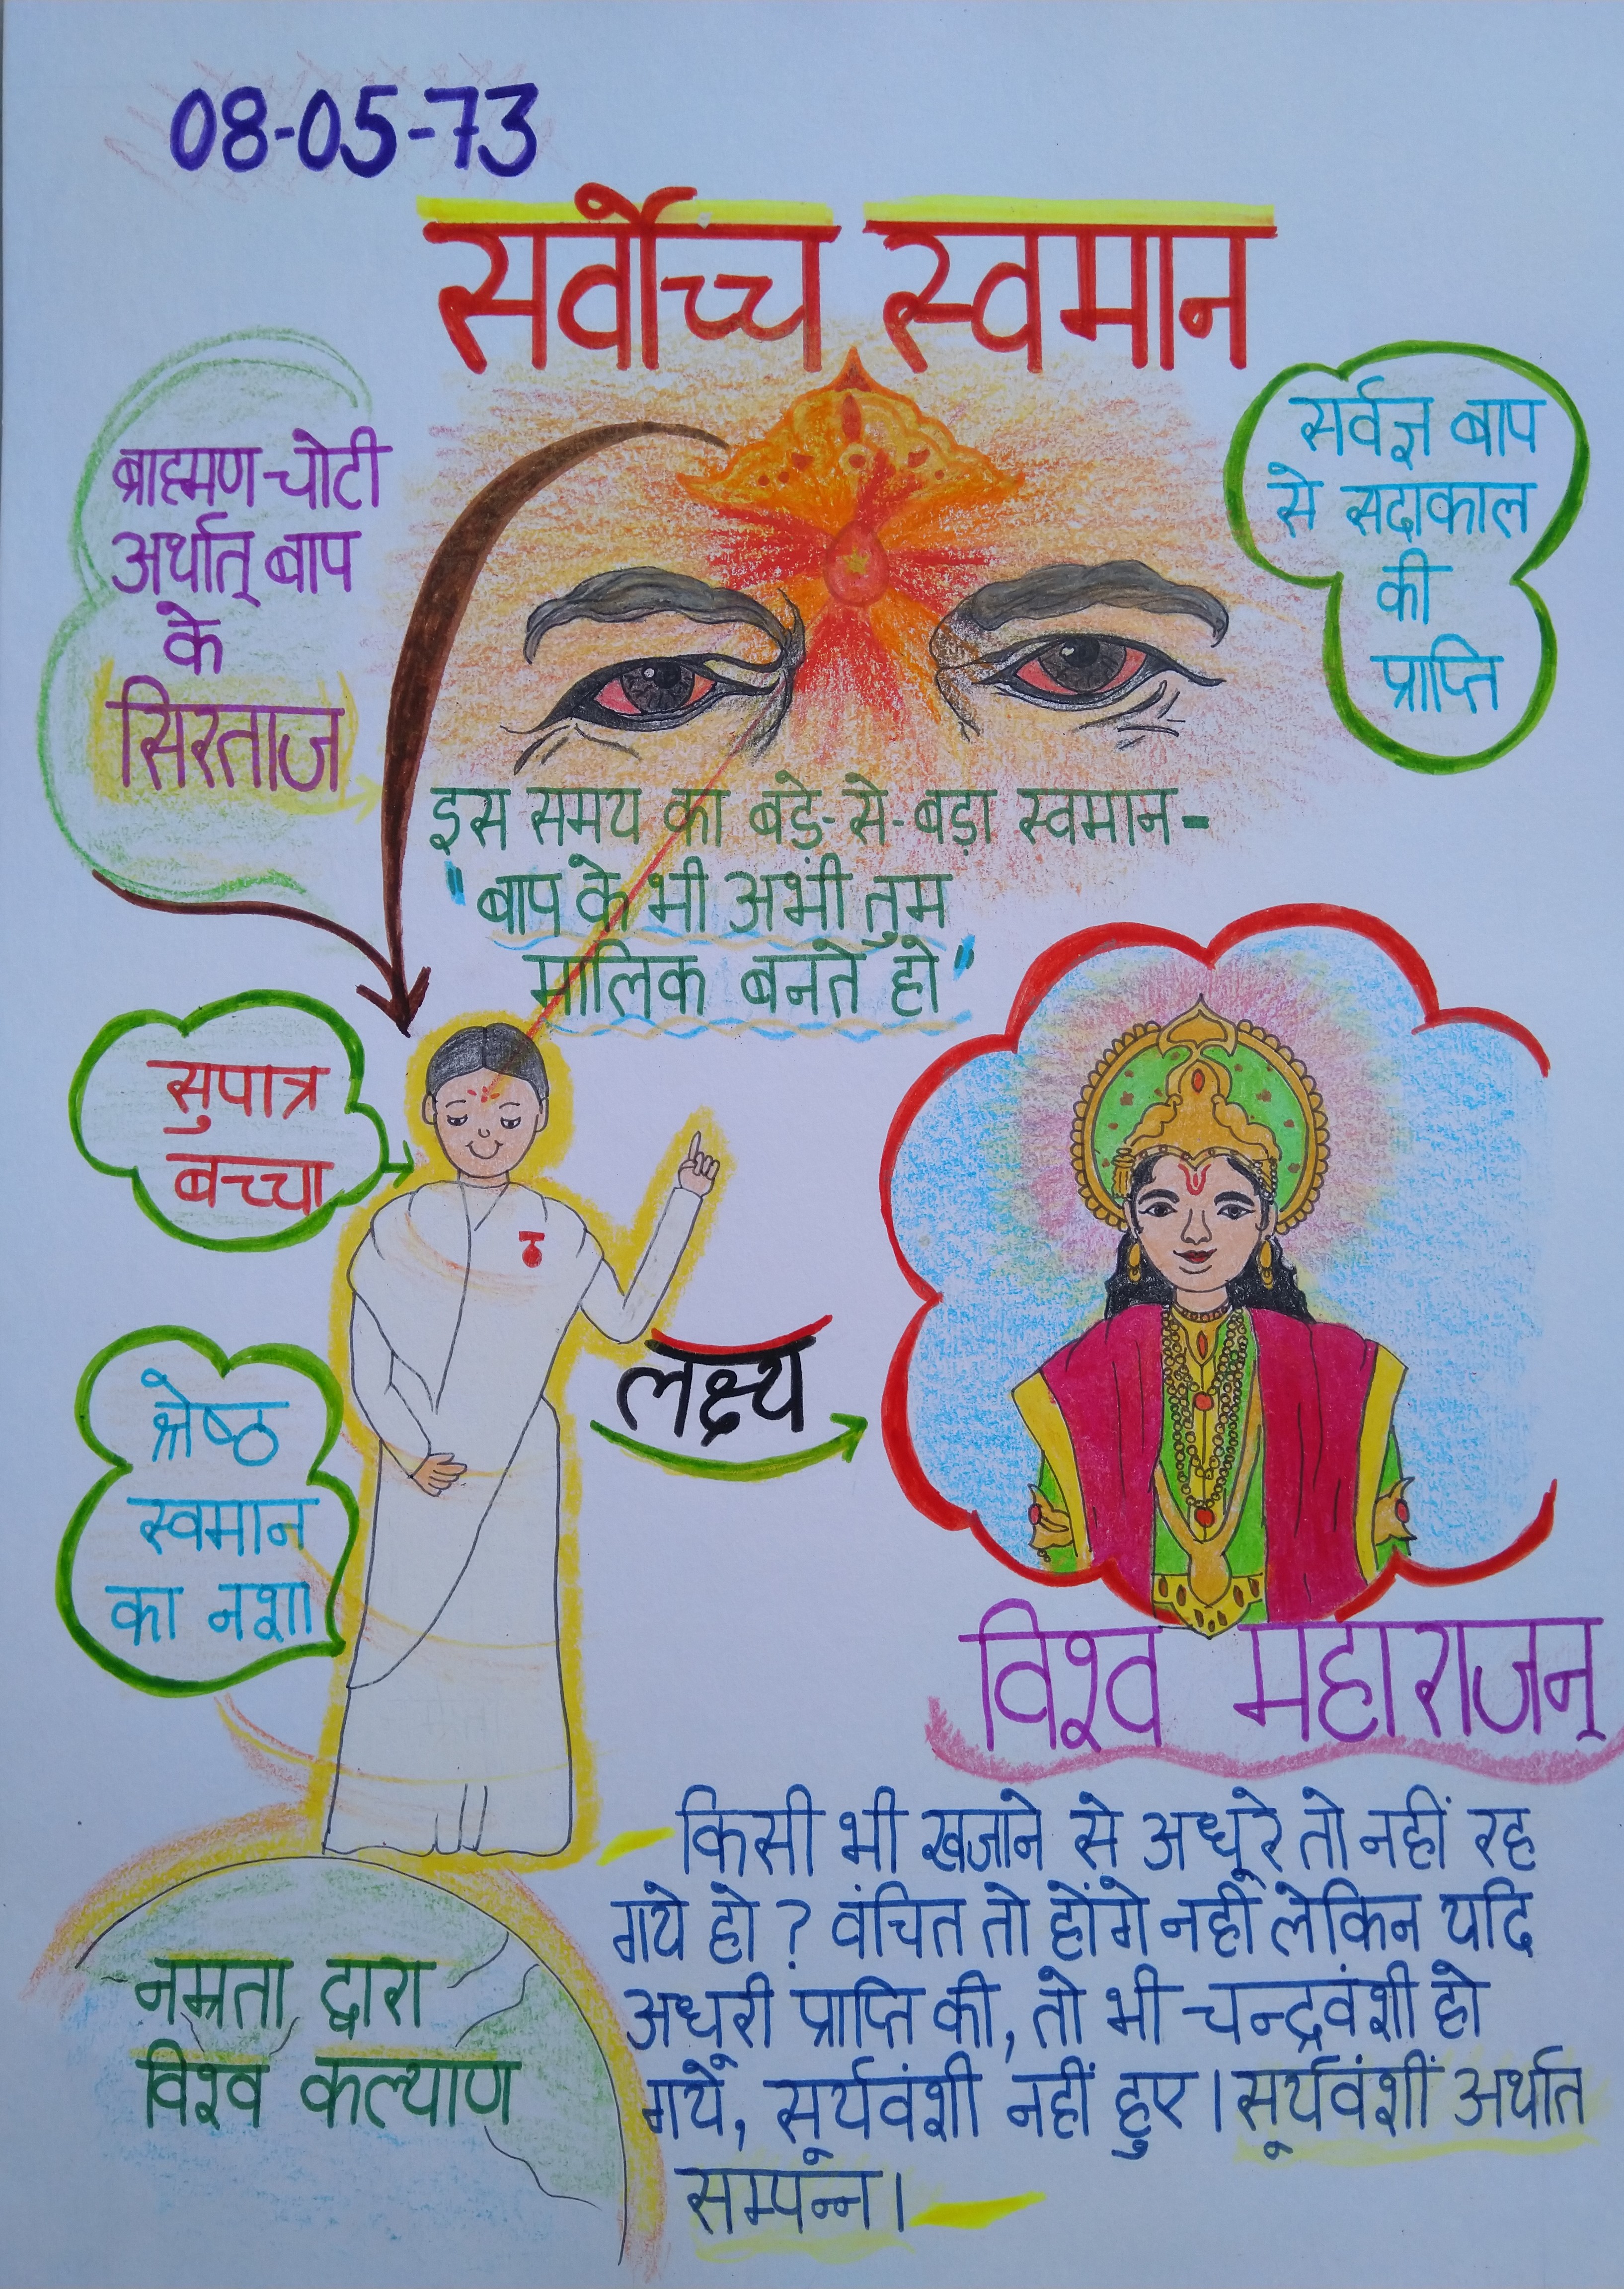 08-05-73
सर्वोच्च स्वमान
ब्राह्मण-चोटी
अर्थात् बाप
के
सिरताज
सर्वज्ञ बाप
से सदाकाल
की
प्राप्ति
इस समय का बड़े-से-बड़ा स्वमान-
"बाप के भी अभी तुम
मालिक बनते हो"
सुपात्र
बच्चा
श्रेष्ठ
स्वमान
का नशा
लक्ष्य
विश्व महाराजन्
किसी भी खजाने से अधूरे तो नहीं रह
गये हो? वंचित तो होंगे नहीं लेकिन यदि
अधूरी प्राप्ति की, तो भी चन्द्रवंशी हो
गये, सूर्यवंशी नहीं हुए। सूर्यवंशीं अर्थात
सम्पन्न।
नम्रता द्वारा
विश्व कल्याण